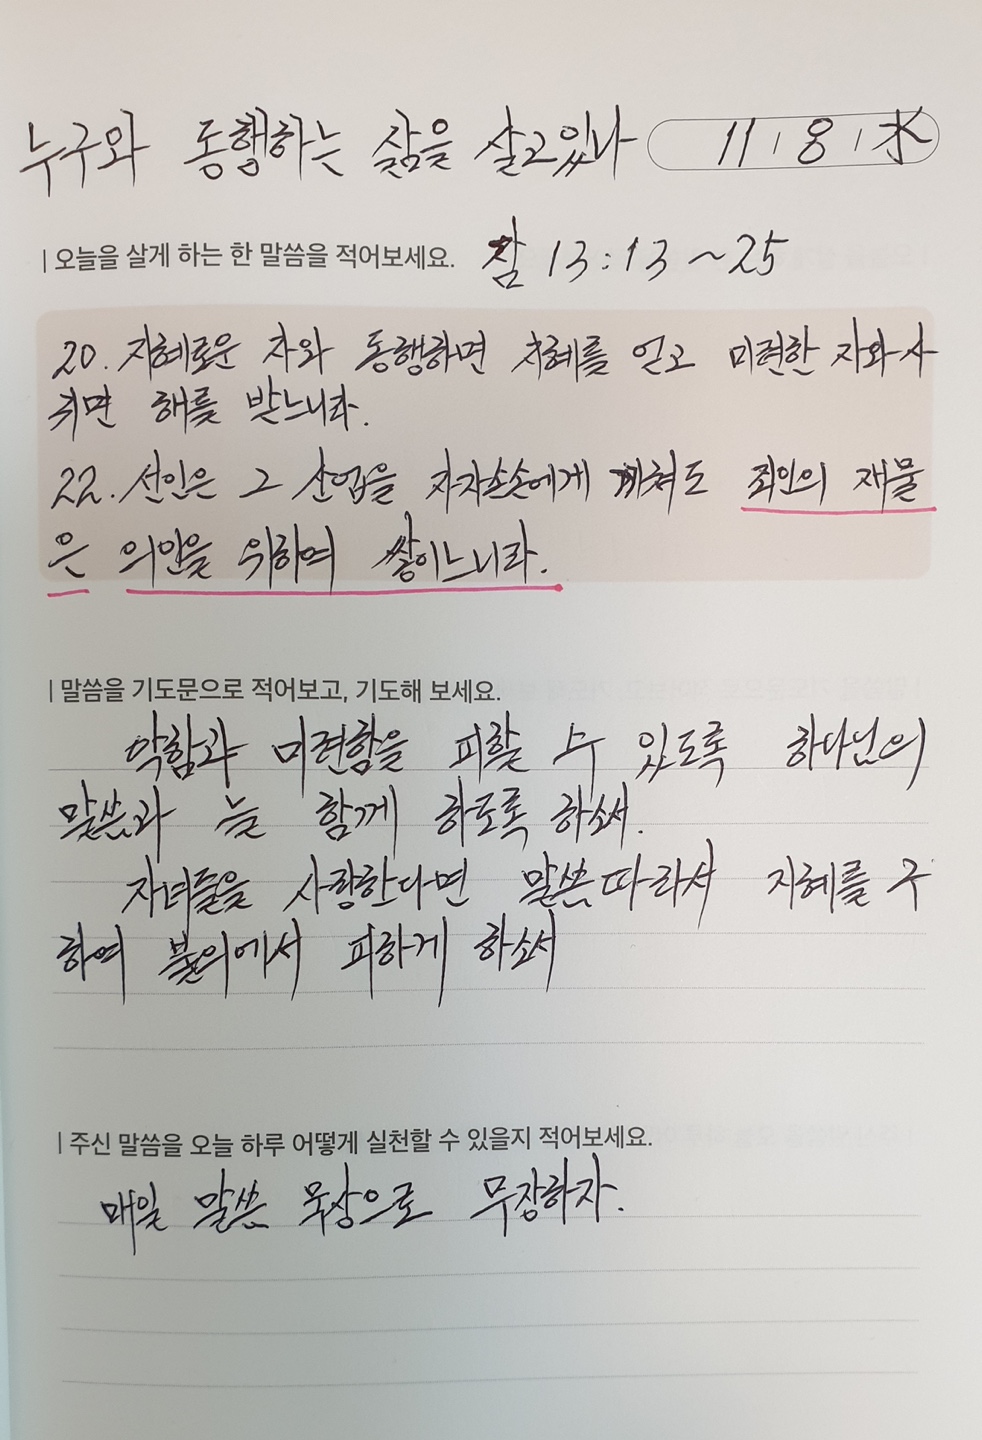 누구와 동행하는 삶을 살고있나 11 / 8 / 水
| 오늘을 살게 하는 한 말씀을 적어보세요. 잠 13:13~25
20. 지혜로운 자와 동행하면 지혜를 얻고 미련한 자와 사
귀면 해를 받느니라.
22. 선인은 그 산업을 자자손손에게 끼쳐도 죄인의 재물
은 의인을 위하여 쌓이느니라.
| 말씀을 기도문으로 적어보고, 기도해 보세요.
악함과 미련함을 피할 수 있도록 하나님의
말씀과 늘 함께 하도록 하소서.
자녀들을 사랑한다면 말씀따라서 지혜를 구
하여 불의에서 피하게 하소서
| 주신 말씀을 오늘 하루 어떻게 실천할 수 있을지 적어보세요.
매일 말씀 묵상으로 무장하자.